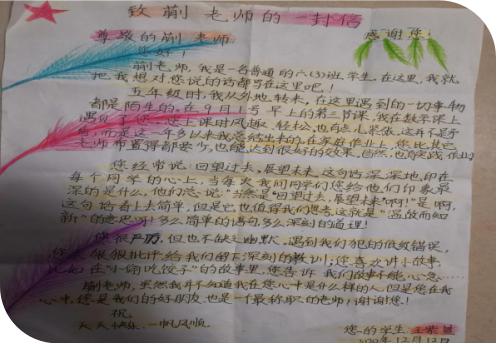 致荆老师的一封信
尊敬的荆老师 感谢您!
您好!
荆老师,我是一名普通的六(3)班学生,在这里,我就
把我想对您说的话都写在这里吧!
五年级时,我从外地转来,在这里遇到的一切事物
都是陌生的,在9月1号早上的第三节课,我在数学课上
遇见了您,这上课时风趣、轻松,也有点儿紧张,这并不是
而是这一年多以来我总结出来的,在家庭作业上,您比其它
老师布置得都要少,也能达到很好的效果,
您经常说:回望过去,展望未来,这句话深深地印在
每个同学的心上,当每次我们同学们您给他们印象最
深的是什么,他们总说:当然是“回望过去,展望未来”啊!是啊,
这句话看上去简单,但是它也值得我们思考这就是“温故而知
新”的意思呀!多么简单的语句,多么深刻的道理!
您很严厉,但也不缺乏幽默,遇到我们犯的低级错误,
您狠狠批评,给我们留下深刻的教训;您喜欢讲小故事,
比如在“小狗吃饺子”的故事里,您告诉我们做事不能心急......
荆老师,虽然我并不知道我在您心中是什么样的人,但是您在我
心中,您是我们的好朋友,也是一个最称职的老师!谢谢您!
祝
天天快乐 一帆风顺
您的学生:王
12月12日